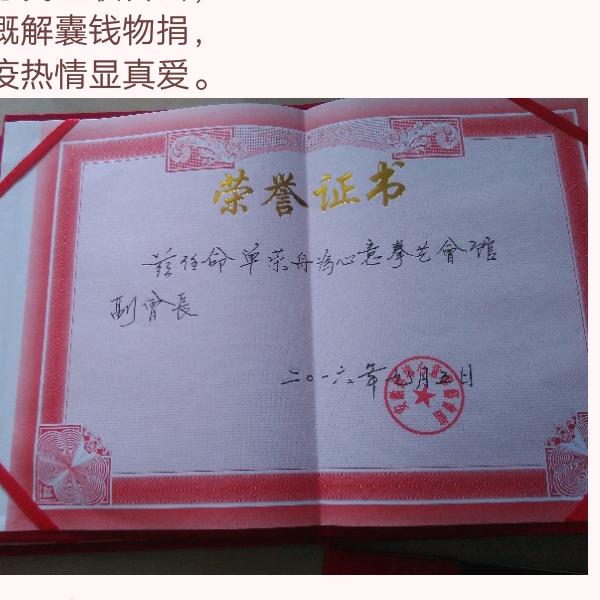 慨解囊钱物捐，
疫热情显真爱。
荣誉证书
兹任命单荣舟为心意拳艺會馆
副會長
二〇一六年九月五日